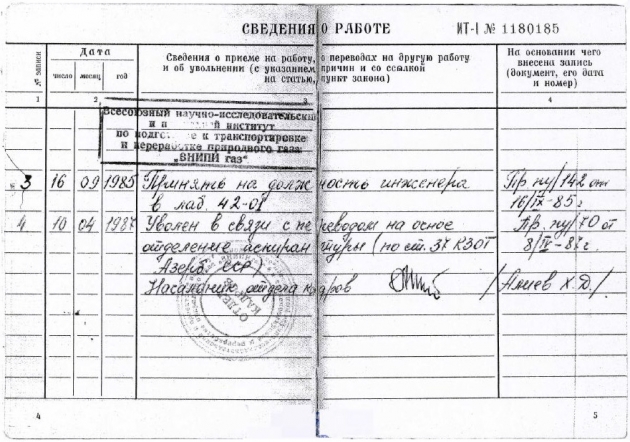 СВЕДЕНИЯ О РАБОТЕ ИТ-I № 1180185
№ записи
Дата
Сведения о приеме на работу, о переводах на другую работу
и об увольнении (с указанием причин и со ссылкой
на статью, пункт закона)
На основании чего
внесена запись
(документ, его дата
и номер)
число месяц год
1 2 3 4
Всесоюзный научно-исследовательский
и институт
по подготовке к транспортировке
и переработке природного газа
„ВНИПИ газ"
3 16 09 1985 Принять на должность инженера Пр. пу/142 от
в лаб. 42-01 16/IX-85 г.
4 10 04 1987 Уволен в связи с переводом на Пр. пу/70 от
отделение аспирантуры (по ст. 37 КЗОТ 8/IV-87 г.
Азерб. ССР)
отдела кадров / Алиев Х.Д./
4 5